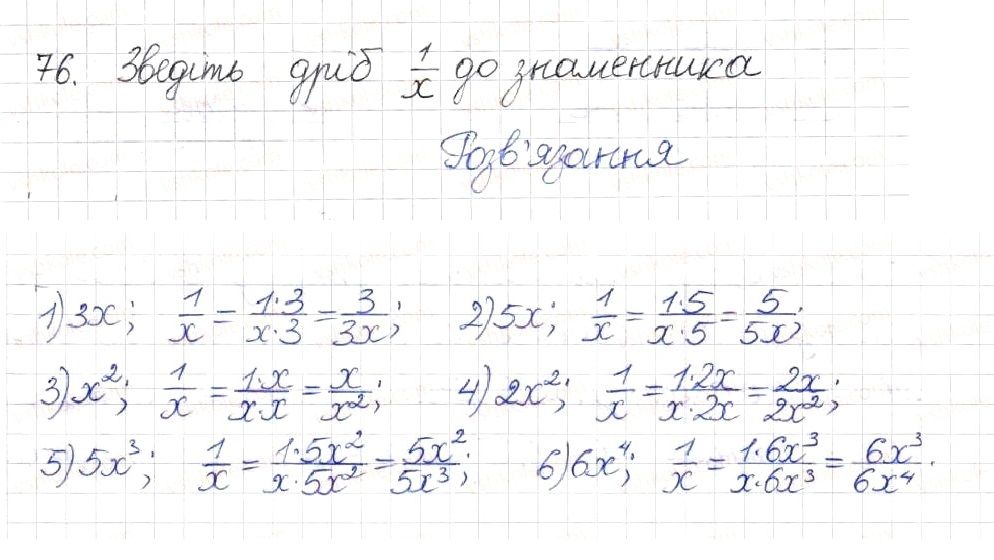 76. Зведіть дріб 1/x до знаменника
Розв'язання
1) 3x; 1/x = 1·3/x·3 = 3/3x; 2) 5x; 1/x = 1·5/x·5 = 5/5x;
3) x²; 1/x = 1·x/x·x = x/x²; 4) 2x²; 1/x = 1·2x/x·2x = 2x/2x²;
5) 5x³; 1/x = 1·5x²/x·5x² = 5x²/5x³; 6) 6x⁴; 1/x = 1·6x³/x·6x³ = 6x³/6x⁴.